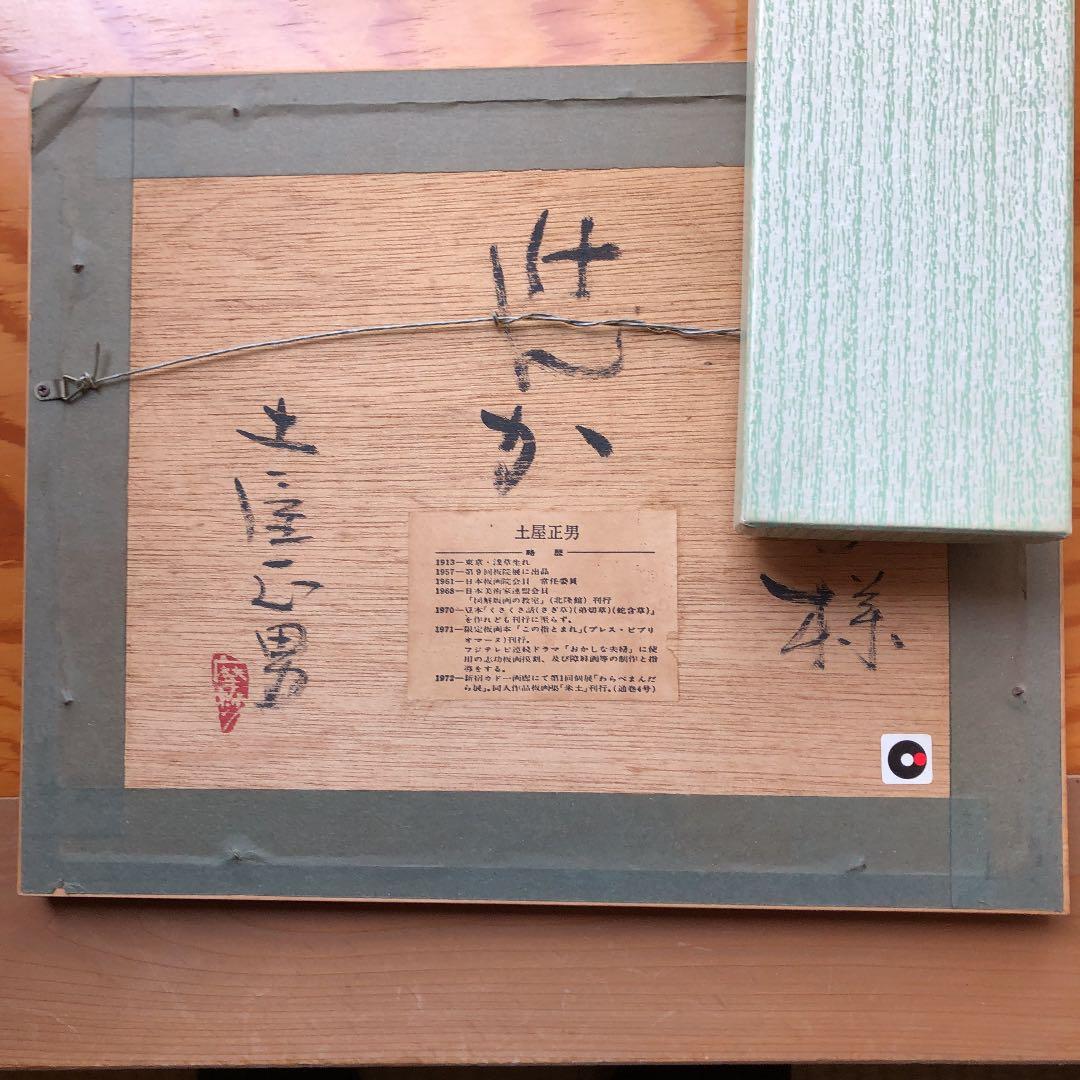 様
土屋正男
土屋正男
略歴
1913—東京・浅草生れ
1957—第9回板院展に出品
1961—日本板画院会員 常任委員
1968—日本美術家連盟会員
「図解版画の教室」(北隆館)刊行
1970—豆本「くさくさ話(さぎ草)(弟切草)(蛇含草)」
を作れども刊行に至らず。
1971—限定板画本「この指とまれ」(プレス・ビブリ
オマーヌ)刊行。
フジテレビ連続ドラマ「おかしな夫婦」に使
用の志功板画模刻、及び障屏画等の制作と指
導をする。
1972—新宿カドー画廊にて第1回個展「わらべまんだ
ら展」。同人作品板画集「朱土」刊行。(通巻4号)